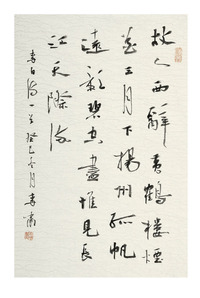 故人西辭黃鶴樓煙
花三月下揚州孤帆
遠影碧空盡惟見長
江天際流
李白詩一首癸巳冬月